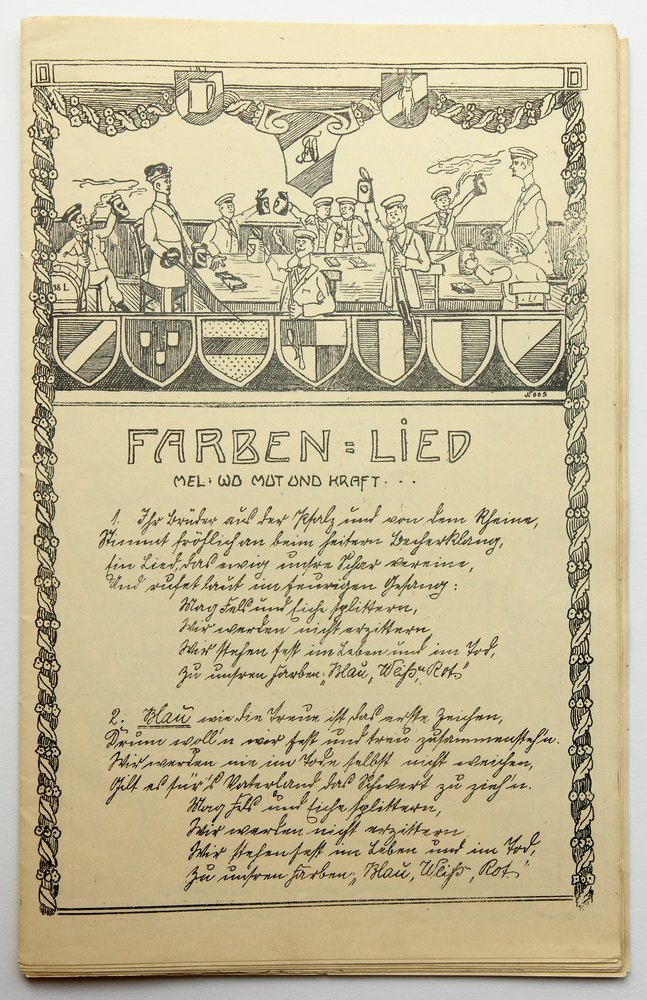 38 L.
J. Loos
FARBEN = LiED
MEL: WO MUT UND KRAFT . . .
1. Ihr Brüder aus der Pfalz und von dem Rheine,
Stimmt fröhlich an beim heitern Becherklang,
Ein Lied, das ewig unsre Schar vereine,
Und rufet laut im feurigen Gesang:
Mag Fels und Eiche splittern,
Wir werden nicht erzittern
Wir stehen fest im Leben und im Tod,
Zu unsren Farben „Blau, Weiß, Rot"
2. Blau wie die Treue ist das erste Zeichen,
Drum woll'n wir fest und treu zusammensteh'n.
Wir werden nie im Tode selbst nicht weichen,
Gilt es für's Vaterland das Schwert zu zieh'n.
Mag Fels und Eiche splittern,
Wir werden nicht erzittern,
Wir stehen fest im Leben und im Tod,
Zu unsren Farben: „Blau, Weiß, Rot."